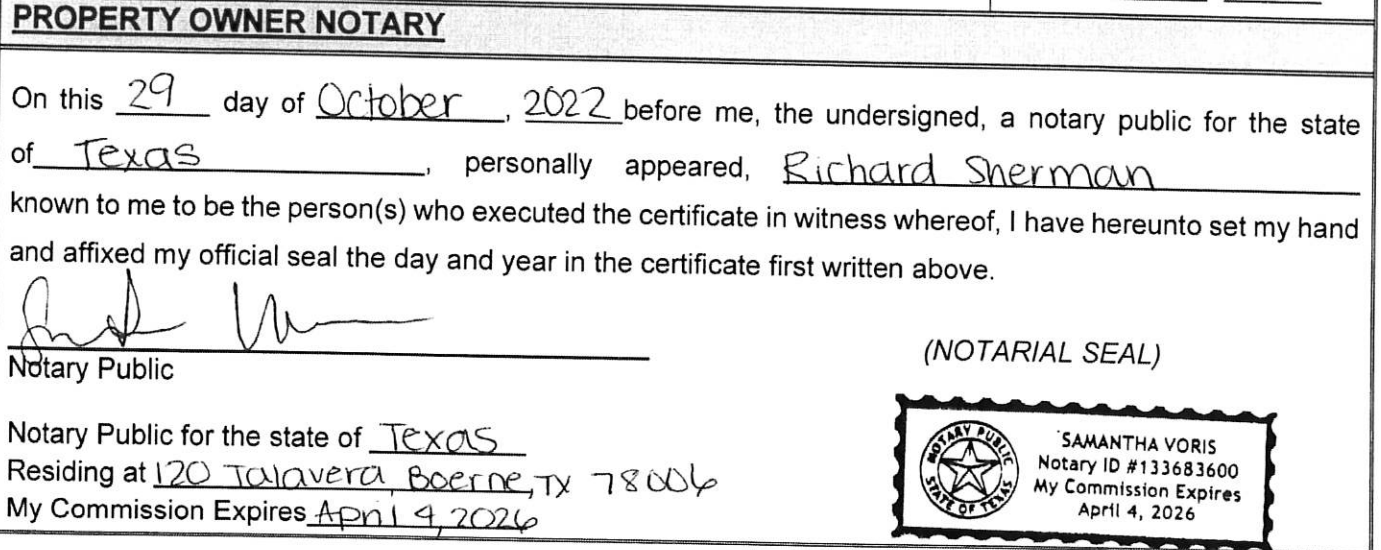 PROPERTY OWNER NOTARY
On this 29 day of October, 2022 before me, the undersigned, a notary public for the state
of Texas, personally appeared, Richard Sherman
known to me to be the person(s) who executed the certificate in witness whereof, I have hereunto set my hand
and affixed my official seal the day and year in the certificate first written above.
Notary Public
(NOTARIAL SEAL)
Notary Public for the state of Texas
Residing at 120 Talavera Boerne, TX 78006
My Commission Expires April 4, 2026
NOTARY PUBLIC
STATE OF TEXAS
SAMANTHA VORIS
Notary ID #133683600
My Commission Expires
April 4, 2026